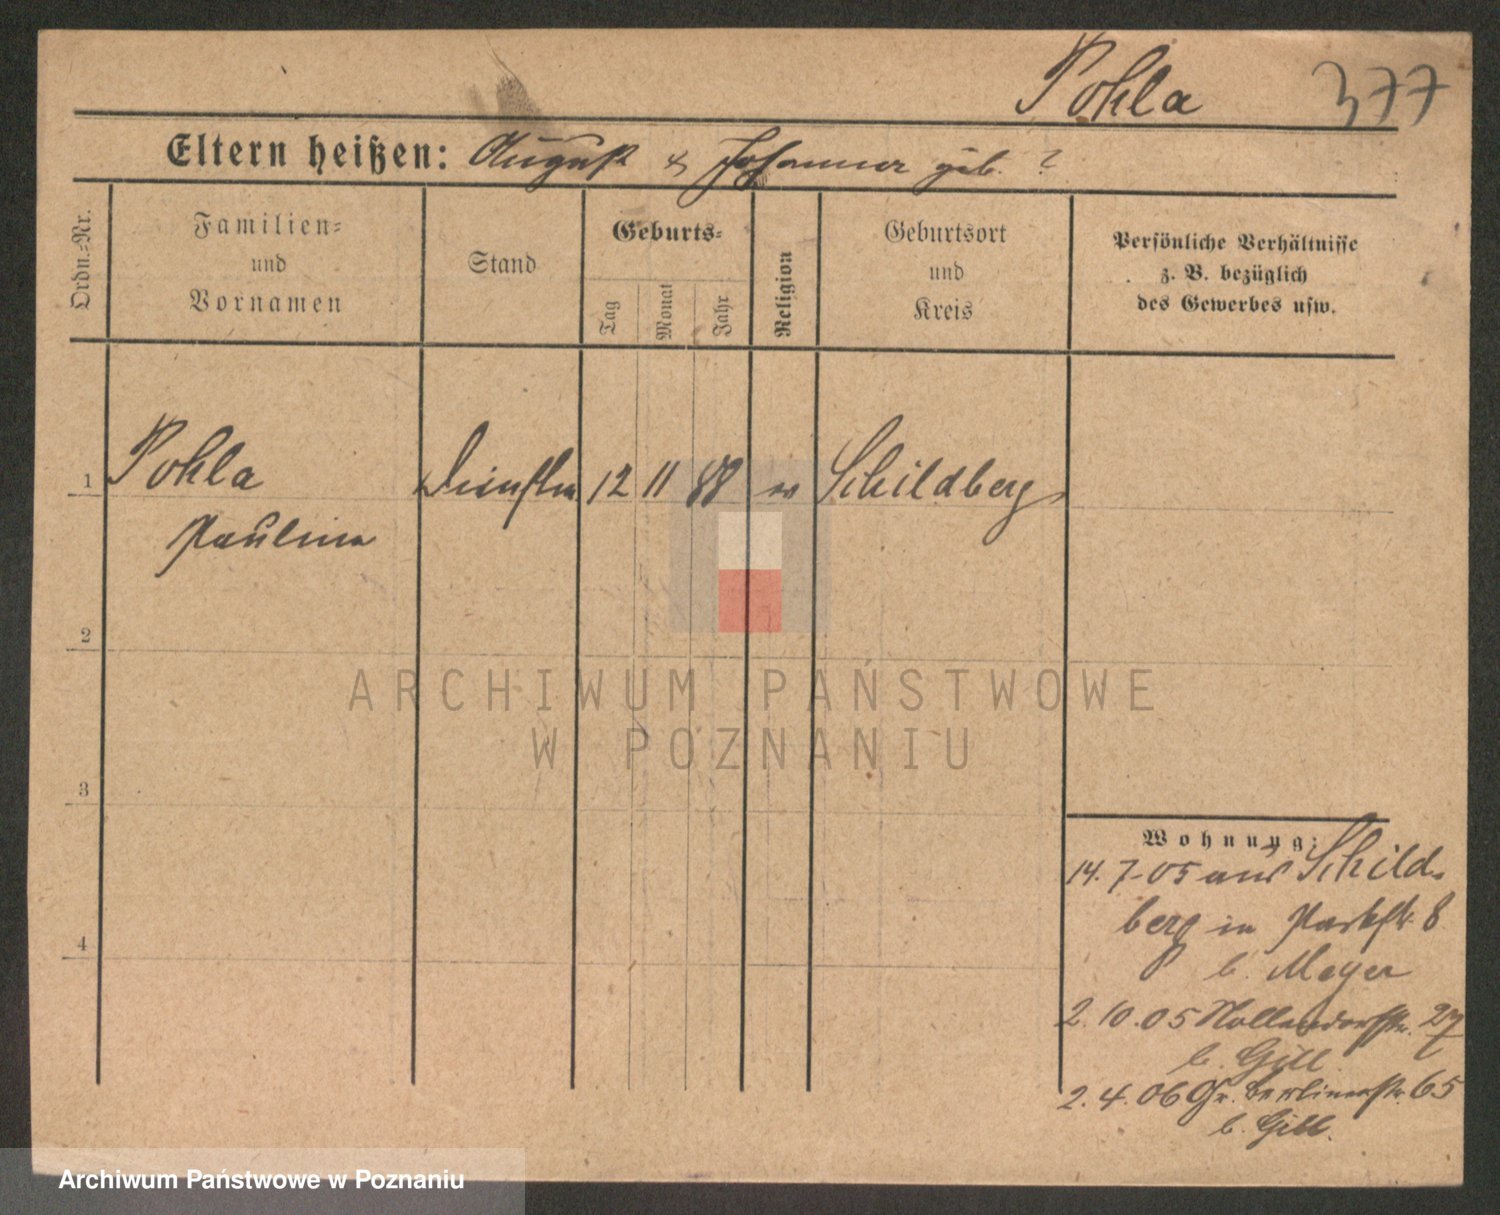 Pohla 377
Eltern heißen: August & Johanna geb. ?
Ordn.-Nr.
Familien-
und
Vornamen
Stand
Geburts-
Tag
Monat
Jahr
Religion
Geburtsort
und
Kreis
Persönliche Verhältnisse
z. B. bezüglich
des Gewerbes usw.
1 Pohla 12 11 88 ev Schildberg
Paulina
2
3
4
Wohnung:
14. 7. 05 aus Schild-
berg in Parkstr. 8
b. Meyer
2. 10. 05 Nollendorfstr. 27
b. Gill
2. 4. 06 Gr. Berlinerstr. 65
b. Gill.
ARCHIWUM PAŃSTWOWE
W POZNANIU
Archiwum Państwowe w Poznaniu